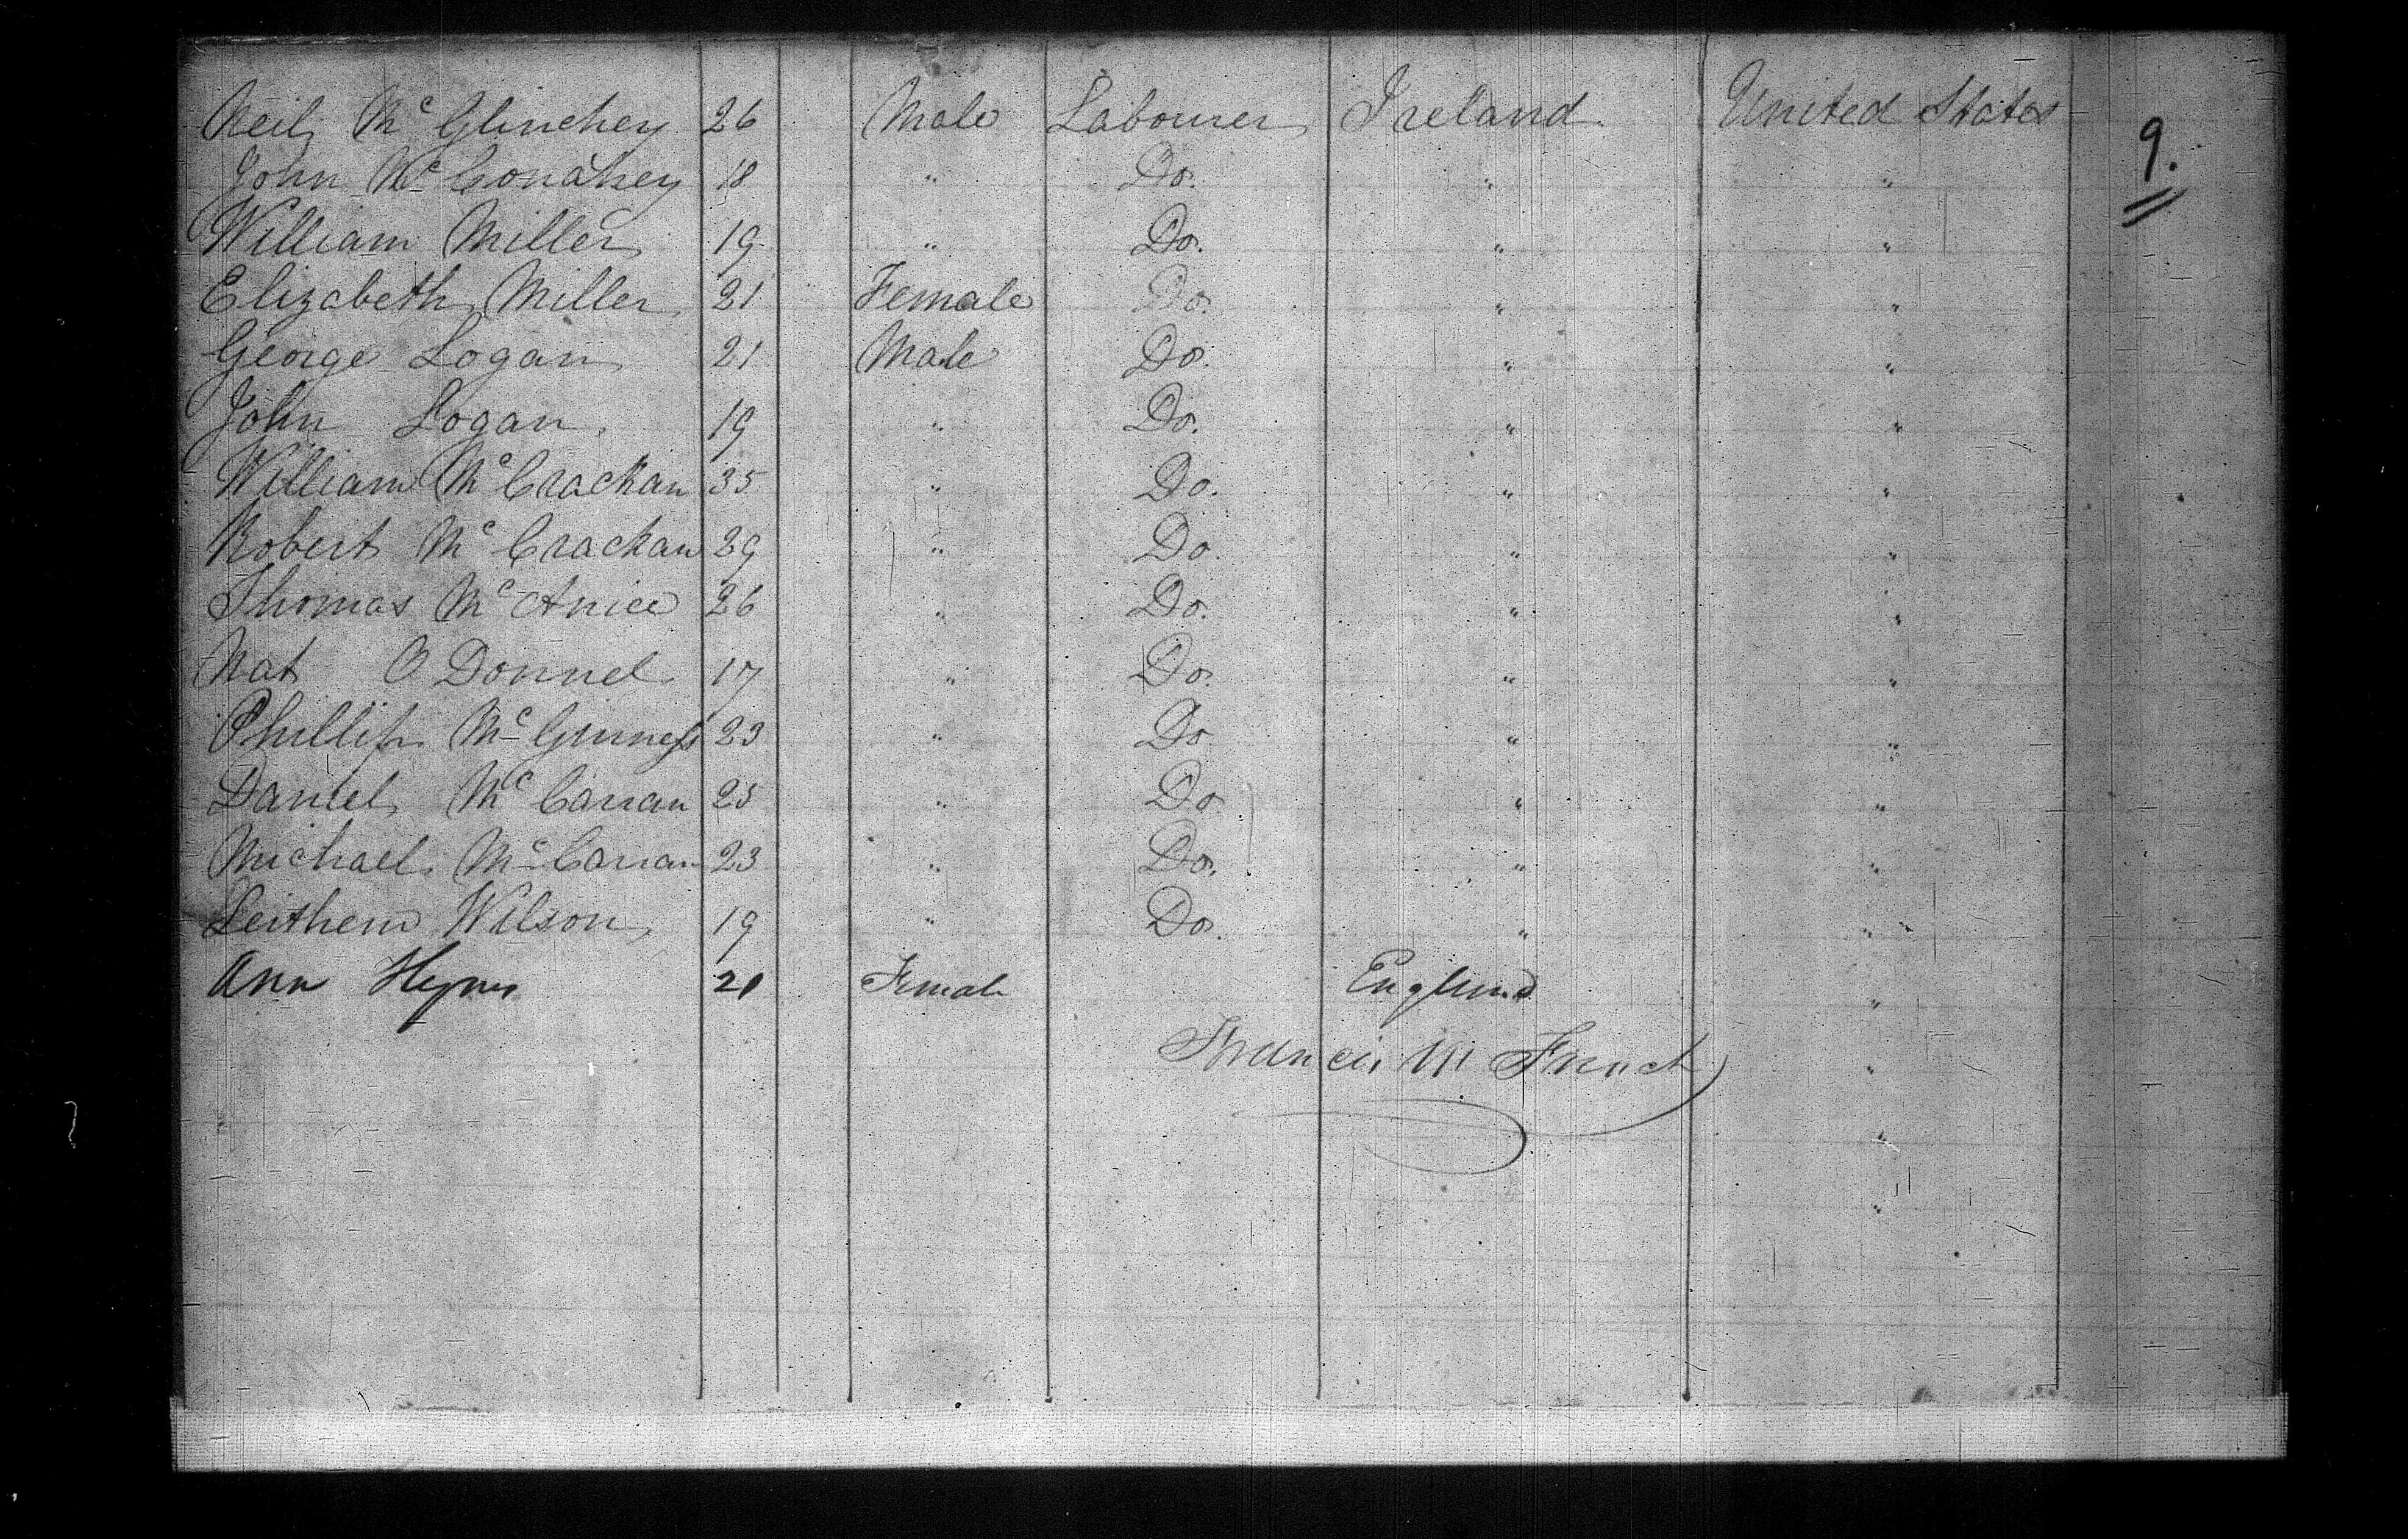 Neil Mc Glinchey 26 Male Labourer Ireland United States
9.
John Mc Conahey 18 " Do. " "
William Miller 19 " Do. " "
Elizabeth Miller 21 Female Do. " "
George Logan 21 Male Do. " "
John Logan 19 " Do. " "
William Mc Crackan 35 " Do. " "
Robert Mc Crackan 29 " Do. " "
Thomas Mc Anice 26 " Do. " "
Nat O Donnel 17 " Do. " "
Phillip Mc Guiness 23 " Do " "
Daniel Mc Carran 25 " Do " "
Michael Mc Carran 23 " Do. " "
Wilson 19 " Do. " "
Ann 21 Female England "
Francis M French "
"
"